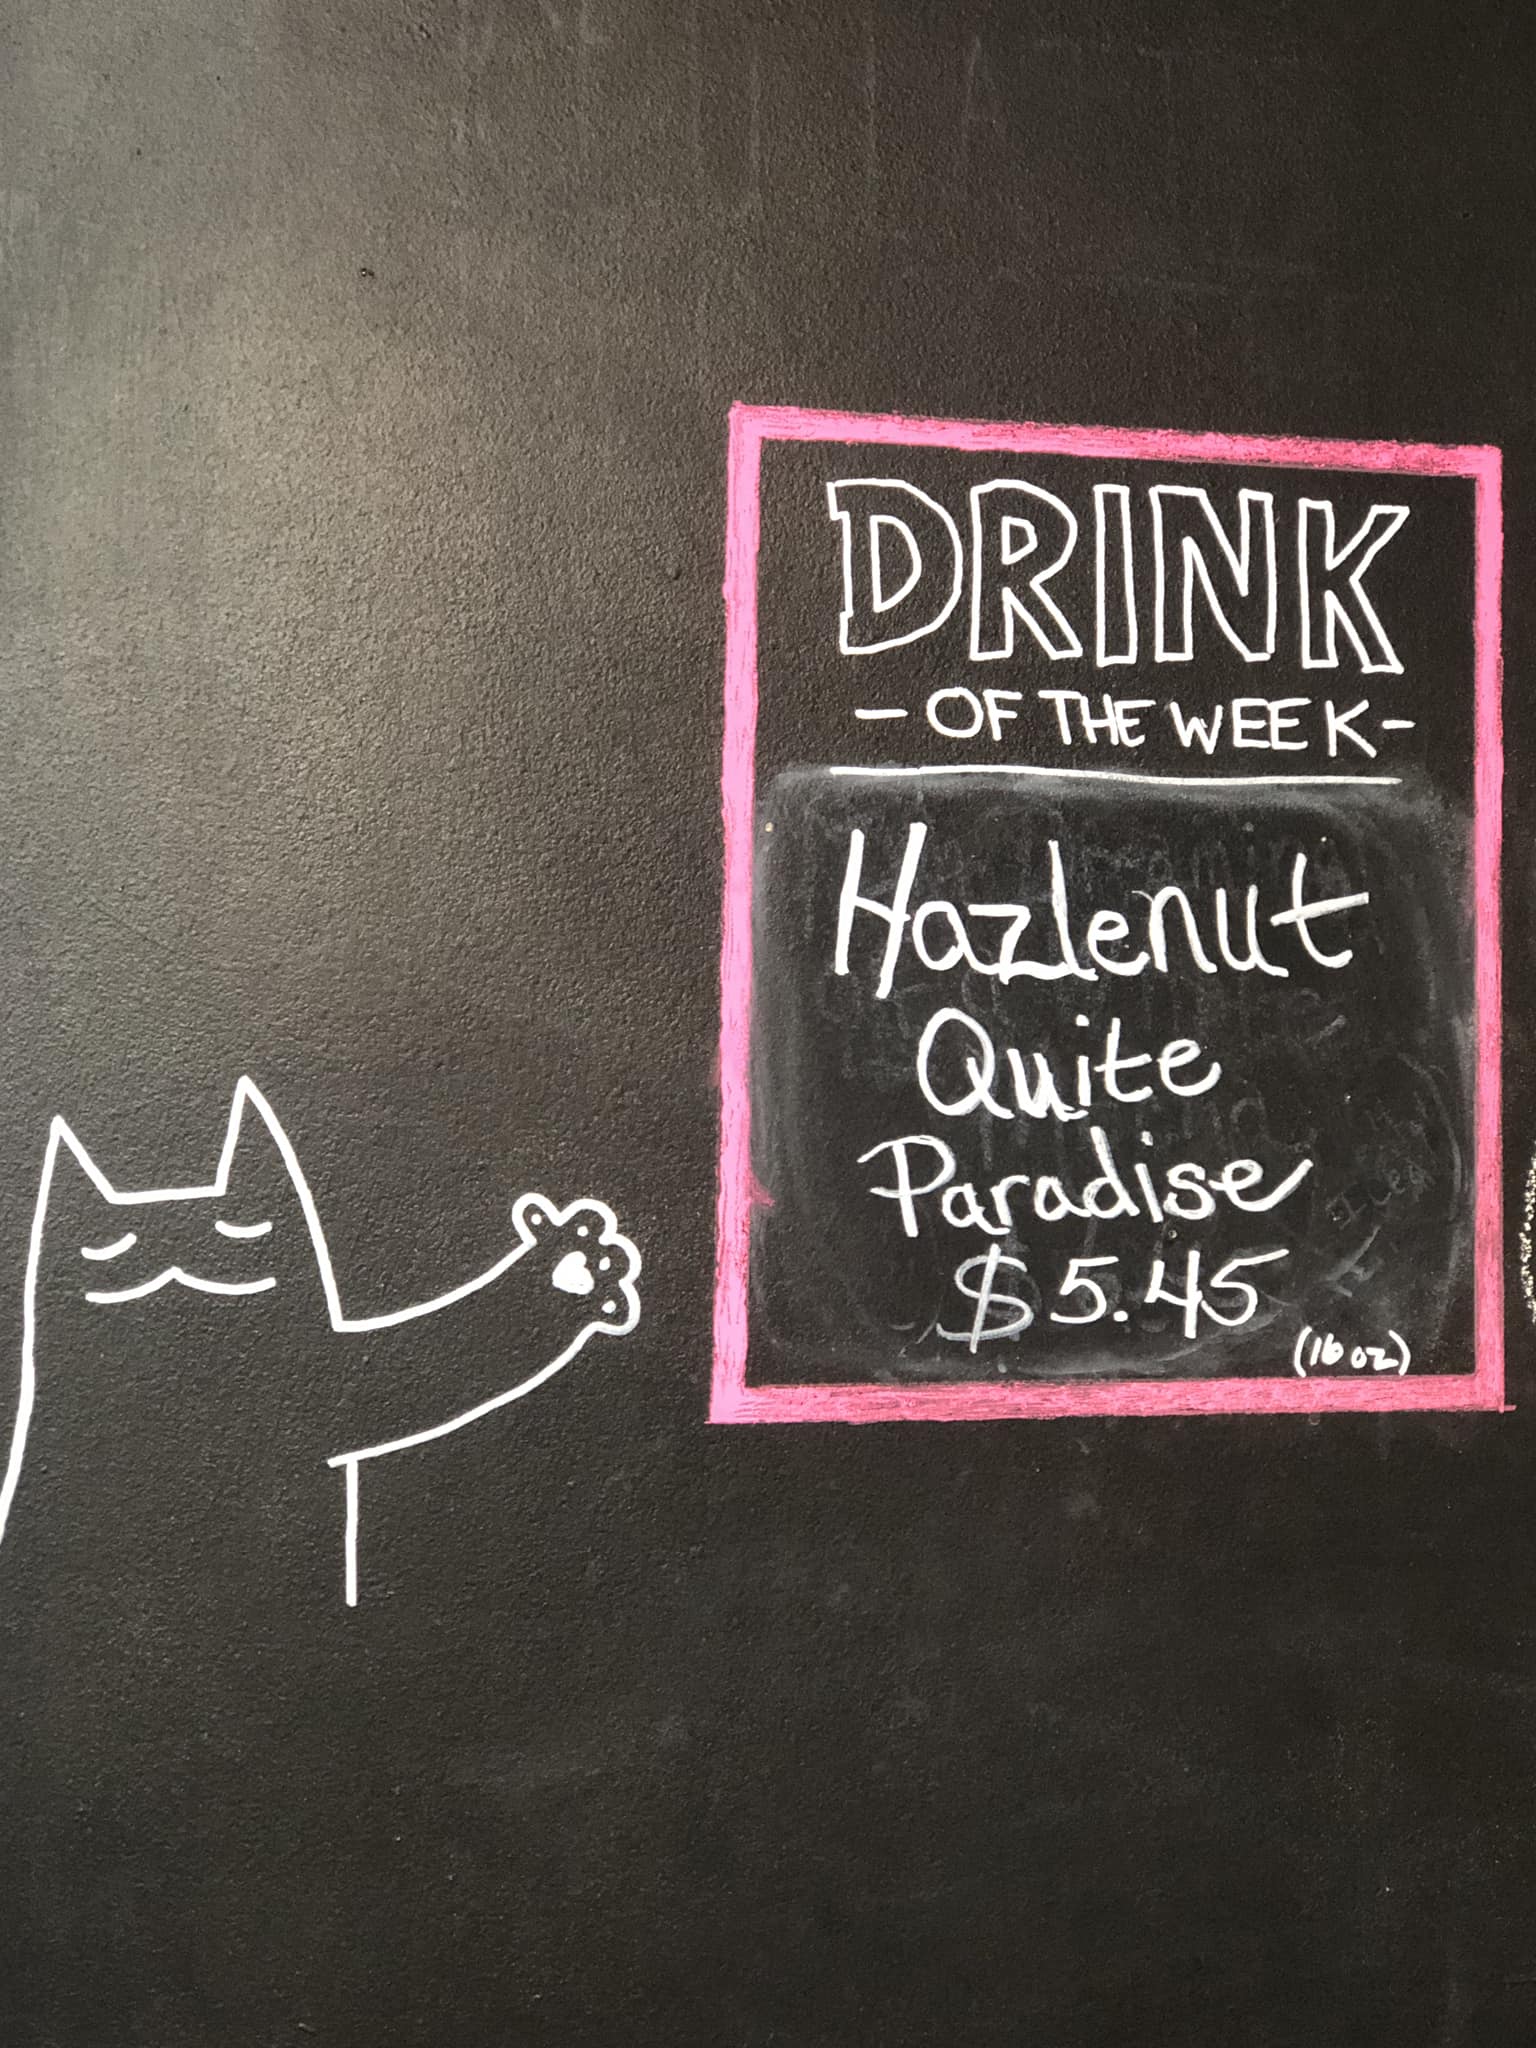 DRINK
- OF THE WEEK -
Hazlenut
Quite
Paradise
$5.45
(16 oz)